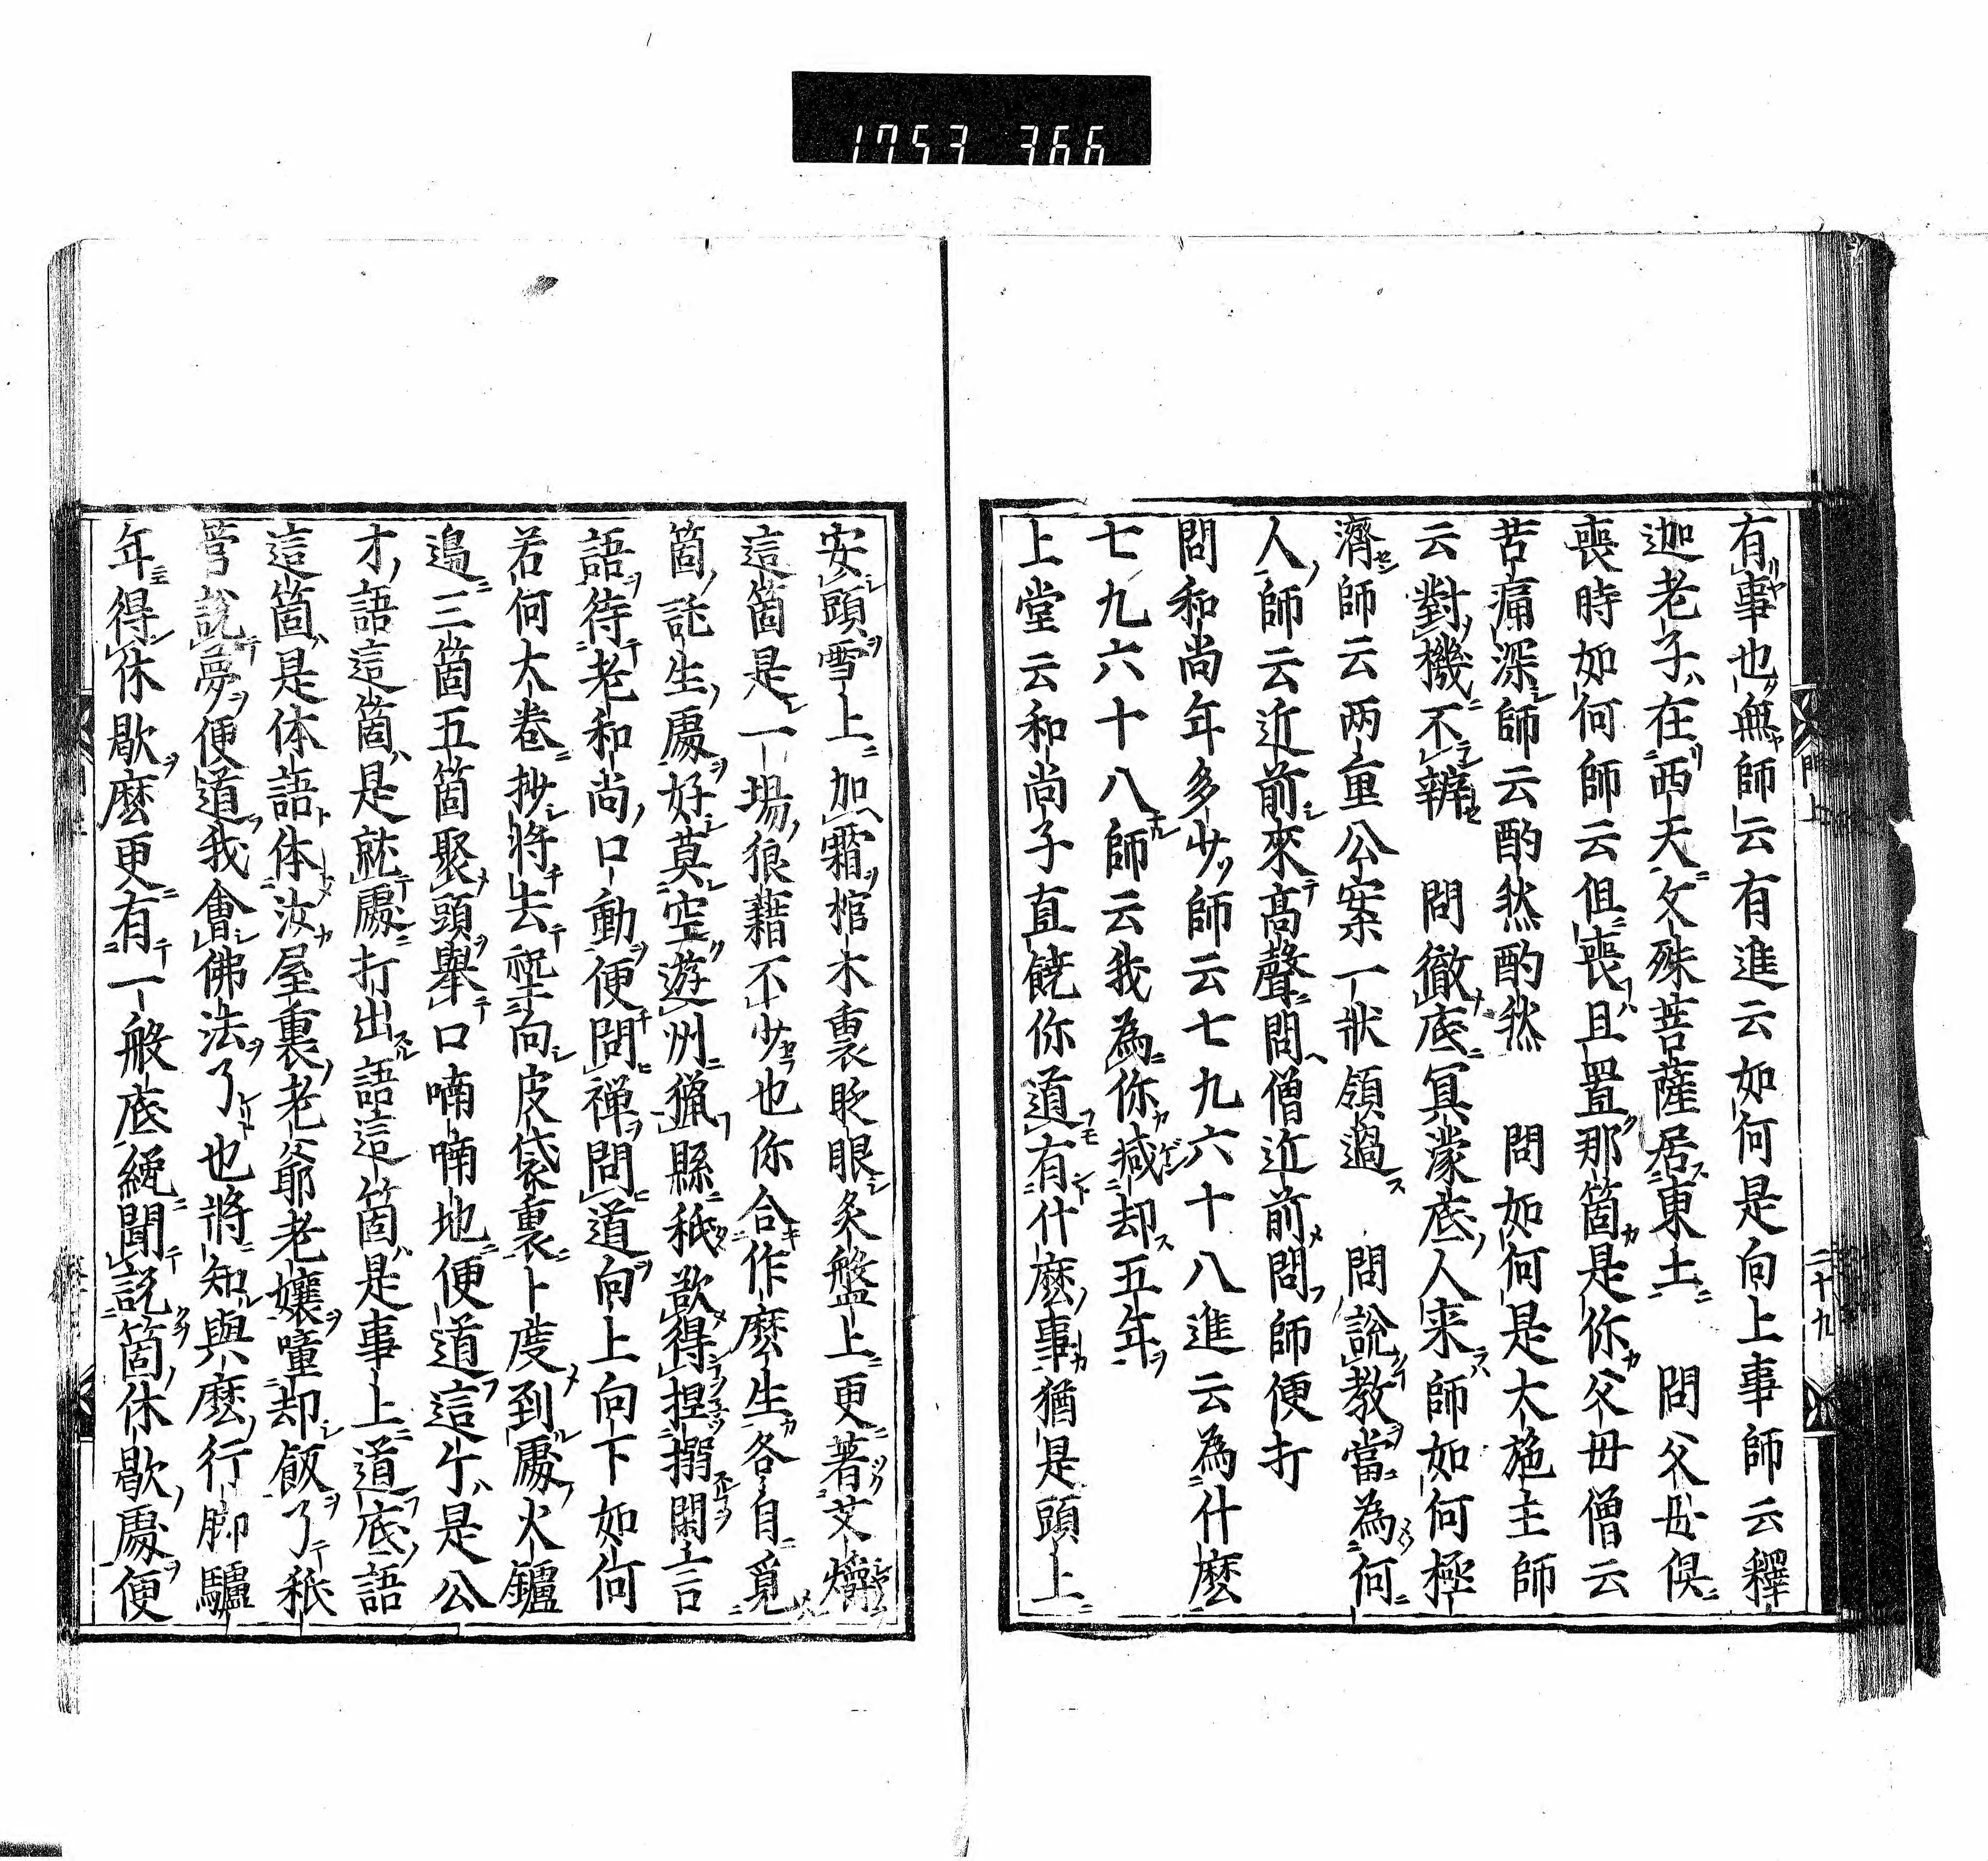 1753 366
有事也無師云有進云如何是向上事師云釋
迦老子在西天文殊菩薩居東土　問父母俱
喪時如何師云俱喪且置那箇是你父母僧云
苦痛深師云酌然酌然　問如何是大施主師
云對機不辨　問徹底冥濛底人来師如何極
濟師云两重公案一狀領過　問說教當為何
人師云近前來高聲問僧近前問師便打
問和尚年多少師云七九六十八進云為什麼
七九六十八師云我為你減却五年
上堂云和尚子直饒你道有什麼事猶是頭上
安頭雪上加霜棺木裏眨眼炙盤上更著艾燋
這箇是一場狼藉不少也你合作麼生各自覓
箇託生處好莫空遊州獵縣秖欲得捏搦閑言
語待老和尚口動便問禅問道向上向下如何
若何大卷抄將去向皮袋裏卜度到處火鑪
邉三箇五箇聚頭舉口喃喃地便道這个是公
才語這箇是就處打出語這箇是事上道底語
這箇是体語体汝屋裏老爺老孃噇却飯了秖
管說夢便道我會佛法了也將知與麼行脚驢
年得休歇麼更有一般底纔聞說箇休歇處便
門上
二十九